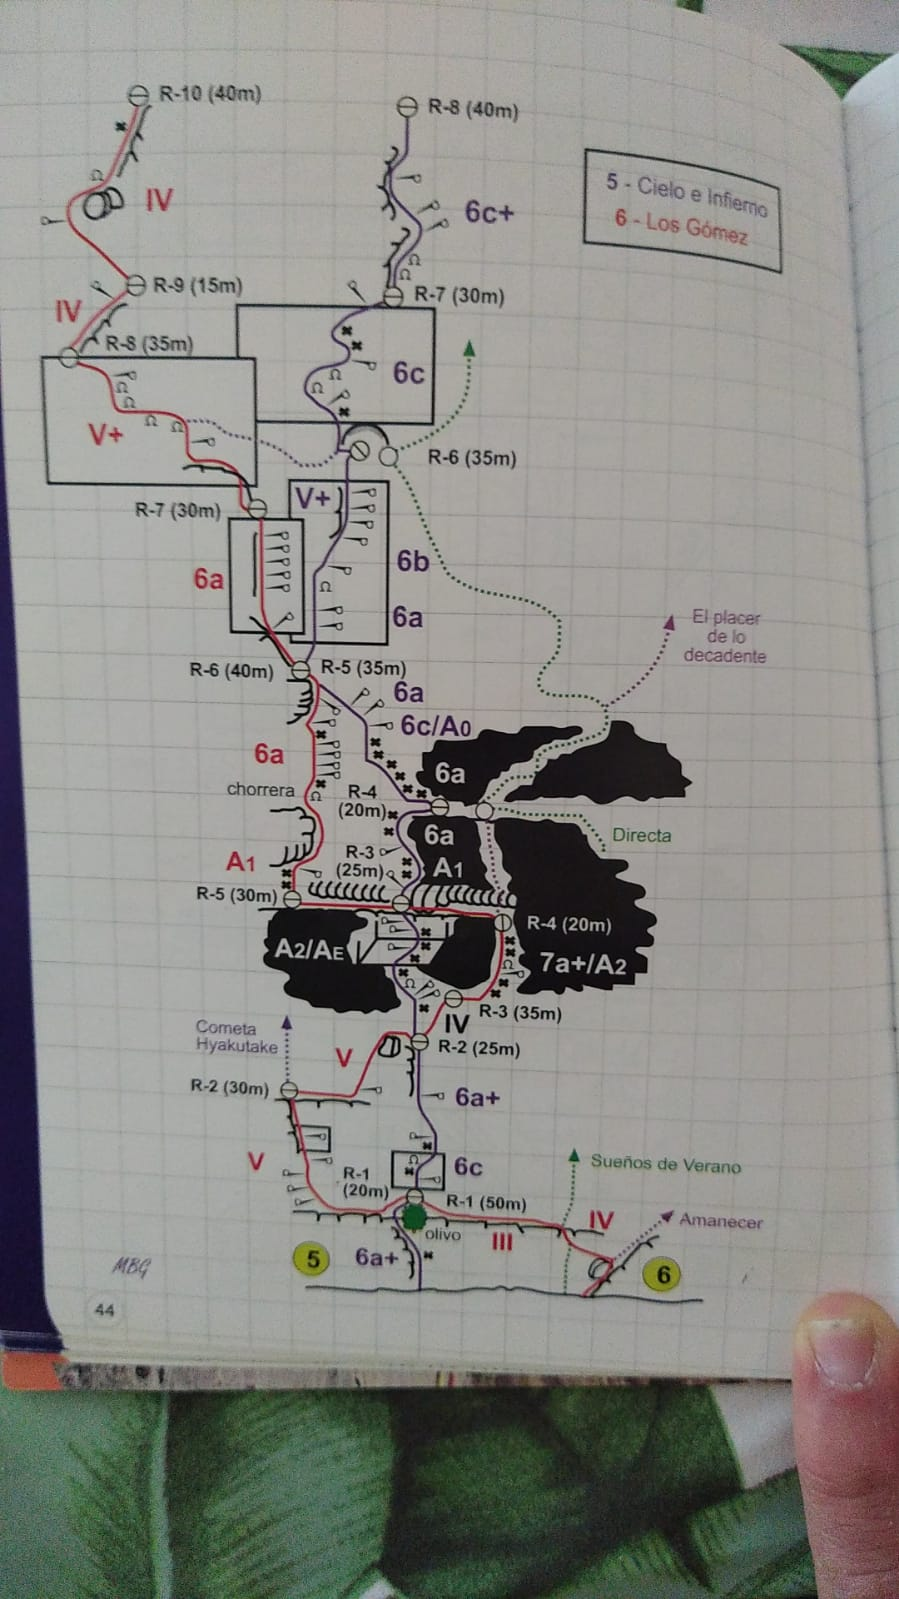 R-10 (40m)
R-8 (40m)
5 - Cielo e Infierno
6 - Los Gómez
IV
6c+
R-9 (15m)
R-7 (30m)
IV
R-8 (35m)
6c
V+
R-6 (35m)
V+
R-7 (30m)
6b
6a
6a
El placer
de lo
decadente
R-6 (40m)
R-5 (35m)
6a
6c/A0
6a
6a
chorrera
R-4
(20m)
6a
Directa
R-3
(25m)
A1
A1
R-5 (30m)
R-4 (20m)
A2/AE
7a+/A2
R-3 (35m)
IV
Cometa
Hyakutake
R-2 (25m)
V
R-2 (30m)
6a+
V
6c
Sueños de Verano
R-1
(20m)
R-1 (50m)
IV
Amanecer
olivo
III
5
6a+
6
MBG
44